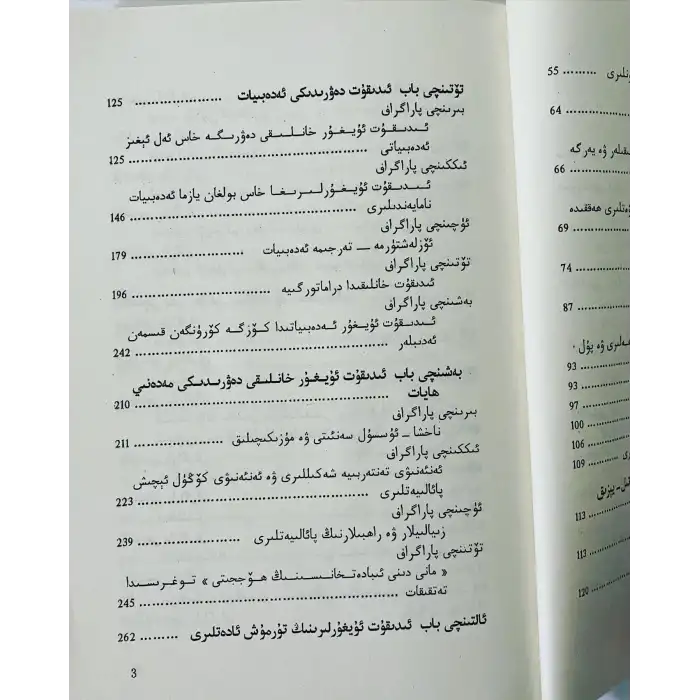 تۆتىنچى باب ئىدىقۇت دەۋرىدىكى ئەدەبىيات ........................ 125
بىرىنچى پاراگراف
ئىدىقۇت ئۇيغۇر خانلىقى دەۋرىگە خاس ئەل ئېغىز
ئەدەبىياتى ........................ 125
ئىككىنچى پاراگراف
ئىدىقۇت ئۇيغۇرلىرىغا خاس بولغان يازما ئەدەبىيات
نامايەندىلىرى ........................ 146
ئۈچىنچى پاراگراف
ئۆزلەشتۈرمە — تەرجىمە ئەدەبىيات ........................ 179
تۆتىنچى پاراگراف
ئىدىقۇت خانلىقىدا دراماتورگىيە ........................ 196
بەشىنچى پاراگراف
ئىدىقۇت ئۇيغۇر ئەدەبىياتىدا كۆزگە كۆرۈنگەن قىسمەن
ئەدىبلەر ........................ 242
بەشىنچى باب ئىدىقۇت ئۇيغۇر خانلىقى دەۋرىدىكى مەدەنىي
ھايات ........................ 210
بىرىنچى پاراگراف
ناخشا - ئۇسسۇل سەنئىتى ۋە مۇزىكىچىلىق ........................ 211
ئىككىنچى پاراگراف
ئەنئەنىۋى تەنتەربىيە شەكىللىرى ۋە ئەنئەنىۋى كۆڭۈل ئېچىش
پائالىيەتلىرى ........................ 223
ئۈچىنچى پاراگراف
زىيالىيلار ۋە راھىبلارنىڭ پائالىيەتلىرى ........................ 239
تۆتىنچى پاراگراف
« مانى دىنى ئىبادەتخانىسىنىڭ ھۆججىتى » توغرىسىدا
تەتقىقات ........................ 245
ئالتىنچى باب ئىدىقۇت ئۇيغۇرلىرىنىڭ تۇرمۇش ئادەتلىرى .......... 262
3
55 ..........
64 ..........
ۋە يەرگە
66 ..........
ھەققىدە
69 ..........
74 ..........
87 ..........
ۋە پۇل
93 ..........
93 ..........
97 ..........
100 ..........
106 ..........
109 ..........
113 ..........
113 ..........
120 ..........